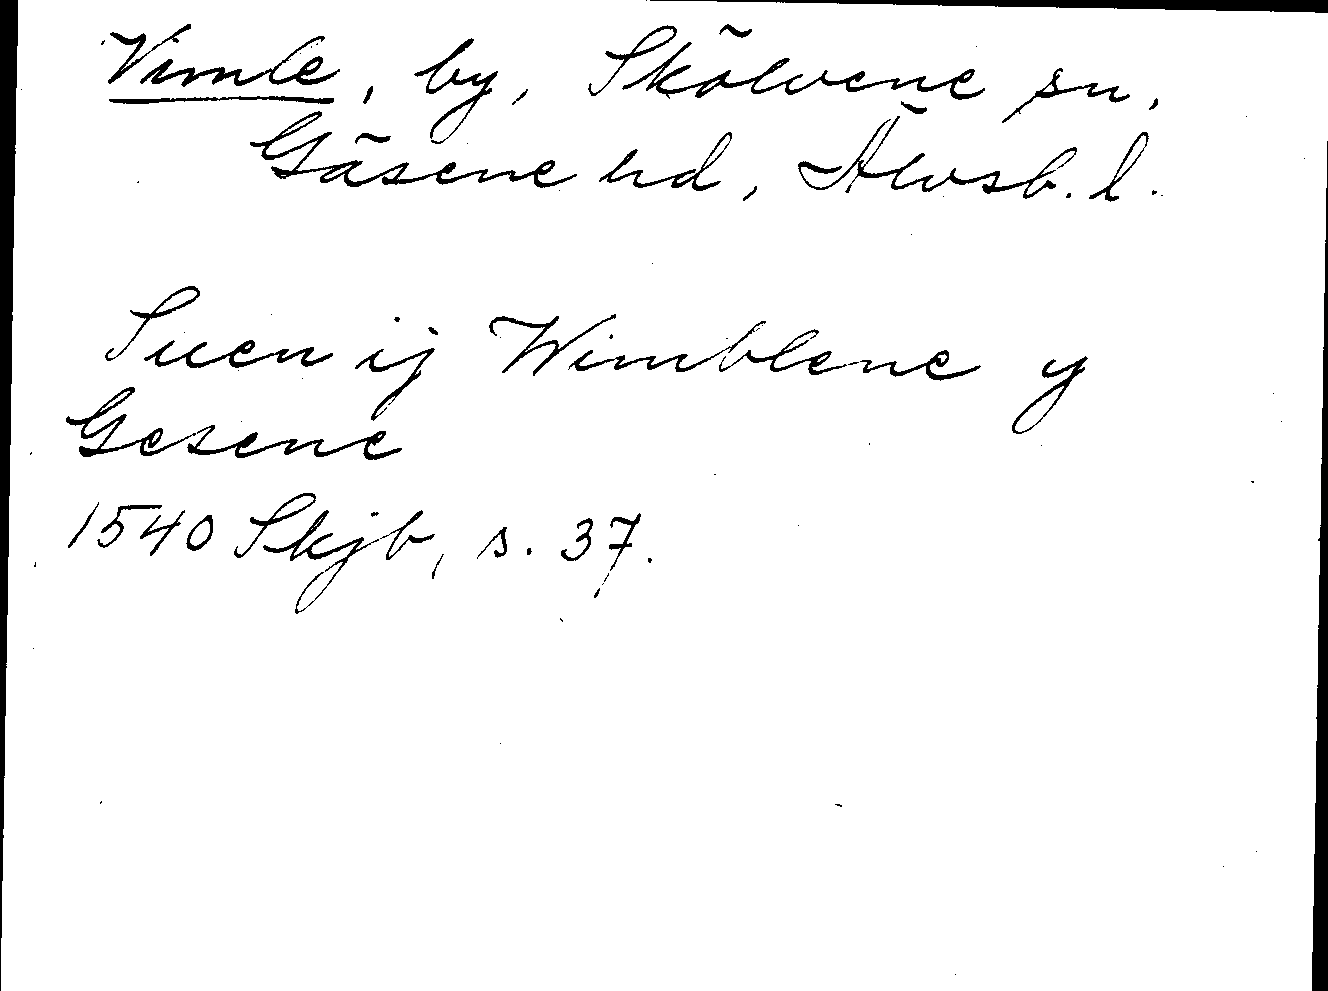 Vimle, by, Skölvene sn,
Gäsene hd, Älvsb. l.
Suen ij Wimblene y
Gesene
1540 Skjb, s. 37.